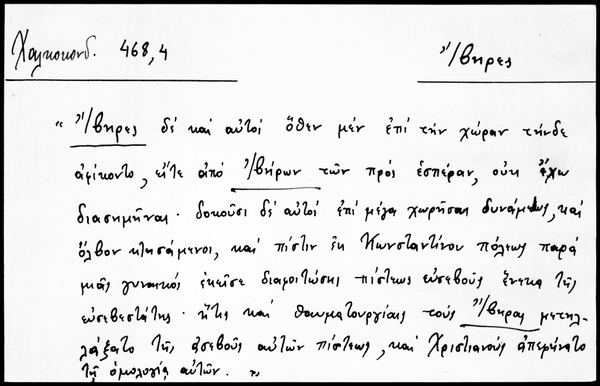 Χαλκοκονδ. 468,4
Ἴβηρες
" Ἴβηρες δέ καί αὐτοί ὅθεν μέν ἐπί τήν χώραν τήνδε
ἀφίκοντο, εἴτε ἀπό Ἰβήρων τῶν πρός ἑσπέραν, οὐκ ἔχω
διασημῆναι· δοκοῦσι δέ αὐτοί ἐπί μέγα χωρῆσαι δυνάμεως, καί
ὄλβον κτησάμενοι, καί πίστιν ἐκ Κωνσταντίνου πόλεως παρά
μιᾶς γυναικός ἐκεῖσε διαφοιτώσης πίστεως εὐσεβοῦς ἕνεκα τῆς
εὐσεβεστάτης· ἥτις καί θαυματουργίαις τούς Ἴβηρας μετηλ-
λάξατο τῆς ἀσεβοῦς αὐτῶν πίστεως, καί Χριστιανούς ἀπεφήνατο
τῇ ὁμολογίᾳ αὐτῶν. "